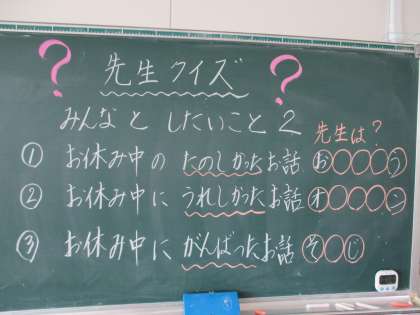 ? 先生クイズ ?
みんなとしたいこと2
先生は?
① お休み中のたのしかったお話 お○○○う
② お休み中にうれしかったお話 オ○○○ン
③ お休み中にがんばったお話 そ○じ